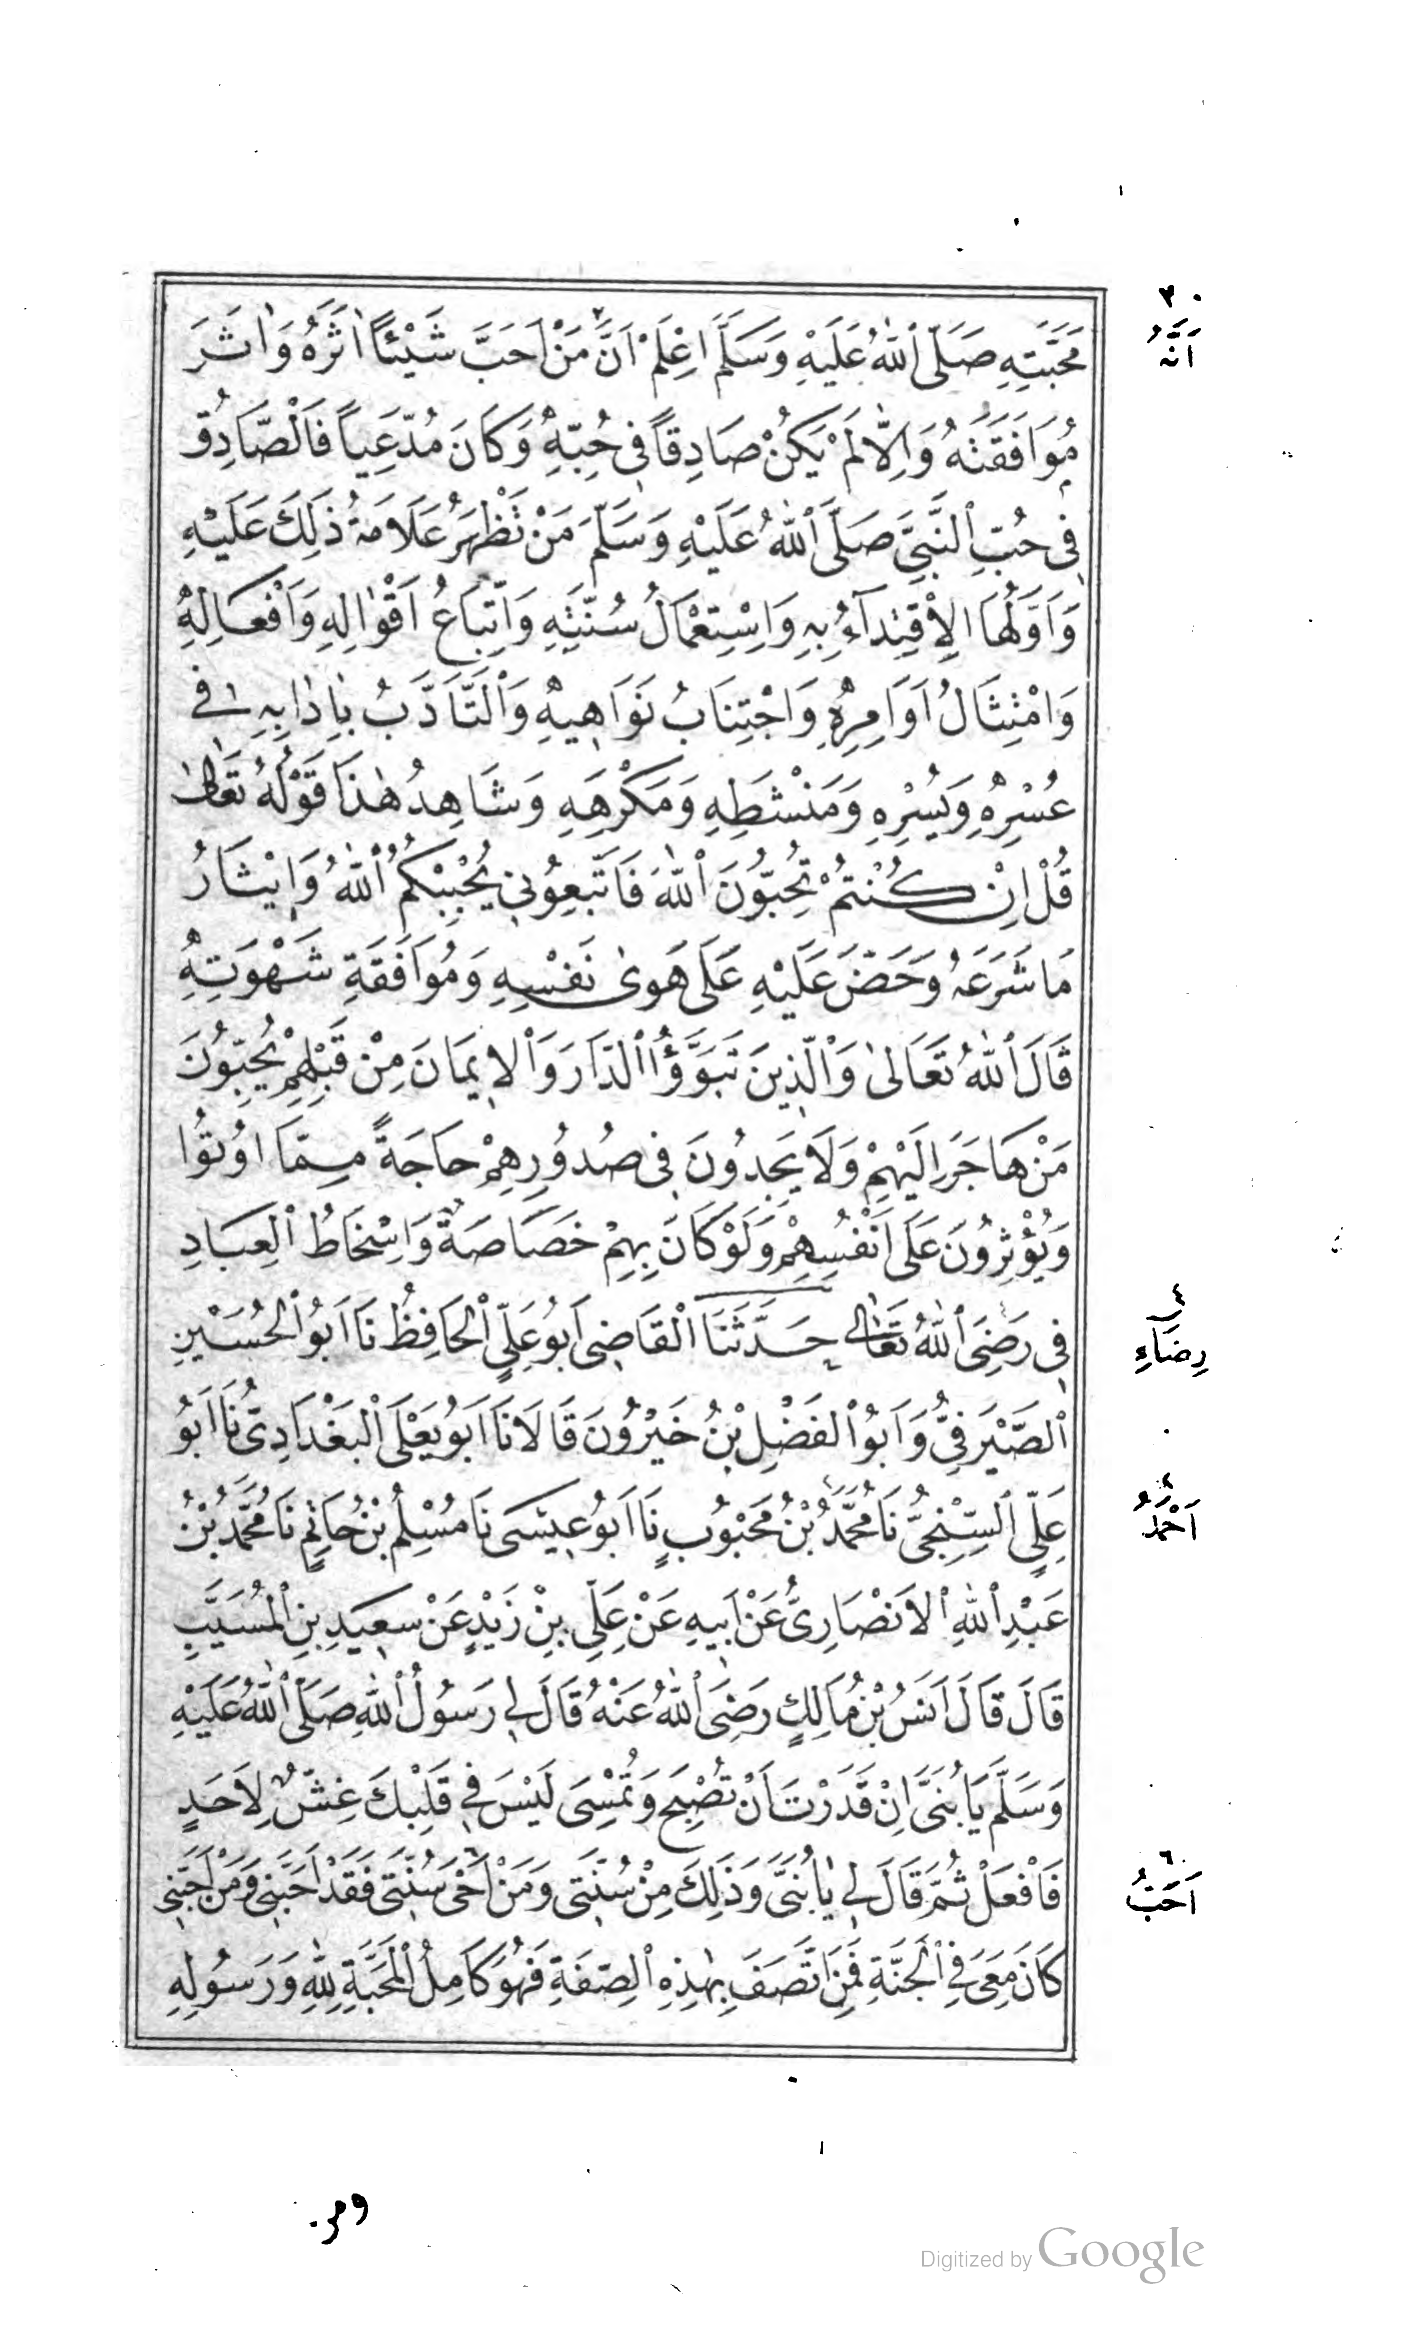 مَحَبَّتِهِ صَلَّى ٱللّٰهُ عَلَيْهِ وَسَلَّمَ اِعْلَمْ اَنَّ مَنْ اَحَبَّ شَيْئًا اٰثَرَهُ وَاٰثَرَ
٣٠
اَنَّهُ
مُوَافَقَتَهُ وَاِلَّا لَمْ يَكُنْ صَادِقًا فِى حُبِّهِ وَكَانَ مُدَّعِيًا فَالصَّادِقُ
فِى حُبِّ ٱلنَّبِىِّ صَلَّى ٱللّٰهُ عَلَيْهِ وَسَلَّمَ مَنْ تَظْهَرُ عَلَامَةُ ذَلِكَ عَلَيْهِ
وَاَوَّلُهَا الْاِقْتِدَآءُ بِهِ وَاِسْتِعْمَالُ سُنَّتِهِ وَاتِّبَاعُ اَقْوٰالِهِ وَاَفْعَالِهِ
وَامْتِثَالُ اَوَامِرِهِ وَاجْتِنَابُ نَوَاهِيهِ وَٱلتَّاَدُّبُ بِاٰدٰابِهِ فِى
عُسْرِهِ وَيُسْرِهِ وَمَنْشَطِهِ وَمَكْرَهِهِ وَشَاهِدُ هٰذَا قَوْلُهُ تَعَالٰى
قُلْ اِنْ كُنْتُمْ تُحِبُّونَ ٱللّٰهَ فَاتَّبِعُونِى يُحْبِبْكُمُ ٱللّٰهُ وَاِيْثَارُ
مَا شَرَعَهُ وَحَضَّ عَلَيْهِ عَلَى هَوٰى نَفْسِهِ وَمُوَافَقَةِ شَهْوَتِهِ
قَالَ ٱللّٰهُ تَعَالىٰ وَٱلَّذِينَ تَبَوَّؤُا ٱلدَّارَ وَٱلاِيمَانَ مِنْ قَبْلِهِمْ يُحِبُّونَ
مَنْ هَاجَرَ اِلَيْهِمْ وَلَا يَجِدُونَ فِى صُدُورِهِمْ حَاجَةً مِمَّا اُوتُوا
وَيُؤْثِرُونَ عَلَى اَنْفُسِهِمْ وَلَوْ كَانَ بِهِمْ خَصَاصَةٌ وَاِسْخَاطُ ٱلْعِبَادِ
فِى رِضَى ٱللّٰهِ تَعَالٰى حَدَّثَنَا ٱلْقَاضِى اَبُو عَلِىٍّ ٱلْحَافِظُ نَا اَبُو ٱلْحُسَيْنِ
٤
رِضَاءِ
ٱلصَّيْرَفِىُّ وَاَبُو ٱلْفَضْلِ بْنُ خَيْرُونَ قَالَا نَا اَبُو يَعْلَى ٱلْبَغْدَادِىُّ نَا اَبُو
عَلِىٍّ ٱلسِّنْجِىُّ نَا مُحَمَّدُ بْنُ مَحْبُوبٍ نَا اَبُو عِيسَى نَا مُسْلِمُ بْنُ حَاتِمٍ نَا مُحَمَّدُ بْنُ
٨
اَحْمَدُ
عَبْدِ ٱللّٰهِ ٱلاَنْصَارِىُّ عَنْ اَبِيهِ عَنْ عَلِىِّ بْنِ زَيْدٍ عَنْ سَعِيدِ بْنِ ٱلْمُسَيَّبِ
قَالَ قَالَ اَنَسُ بْنُ مَالِكٍ رَضِىَ ٱللّٰهُ عَنْهُ قَالَ لِى رَسُولُ ٱللّٰهِ صَلَّى ٱللّٰهُ عَلَيْهِ
وَسَلَّمَ يَا بُنَىَّ اِنْ قَدَرْتَ اَنْ تُصْبِحَ وَتُمْسِىَ لَيْسَ فِى قَلْبِكَ غِشٌّ لِاَحَدٍ
فَافْعَلْ ثُمَّ قَالَ لِى يٰا بُنَىَّ وَذٰلِكَ مِنْ سُنَّتِى وَمَنْ اَحْىَ سُنَّتِى فَقَدْ اَحَبَّنِى وَمَنْ اَحَبَّنِى
٦
اَحَبَّ
كَانَ مَعِىَ فِى ٱلْجَنَّةِ فَمَنِ اتَّصَفَ بِهٰذِهِ ٱلصِّفَةِ فَهُوَ كَامِلُ ٱلْمَحَبَّةِ لِلّٰهِ وَرَسُولِهِ
Digitized by Google